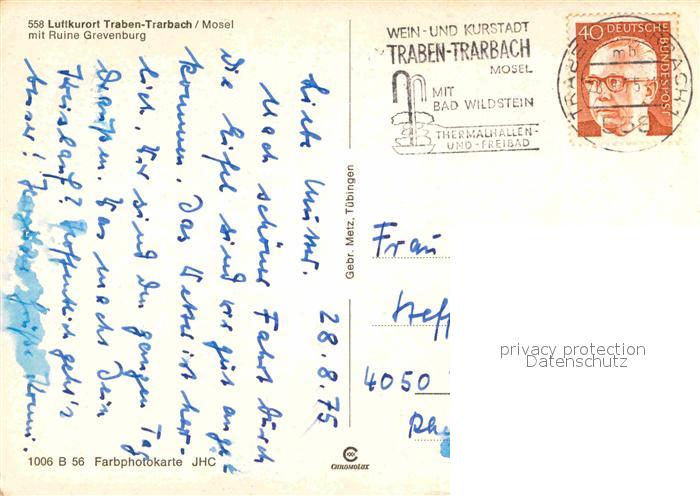 558 Luftkurort Traben-Trarbach / Mosel
mit Ruine Grevenburg
WEIN- UND KURSTADT
TRABEN-TRARBACH
MOSEL
MIT
BAD WILDSTEIN
THERMALHALLEN-
UND-FREIBAD
40 DEUTSCHE BUNDESPOST
28.8.75
Liebe Mutter.
Nach schöner Fahrt durch
die Eifel sind wir gut ange
kommen. Das Wetter ist herr-
lich, wir sind den ganzen Tag
draußen. Was macht Dein
Kreislauf? Hoffentlich geht's
besser! Grüße
Gebr. Metz, Tübingen
Frau
4050
privacy protection
Datenschutz
1006 B 56 Farbphotokarte JHC
CHROMOLUX